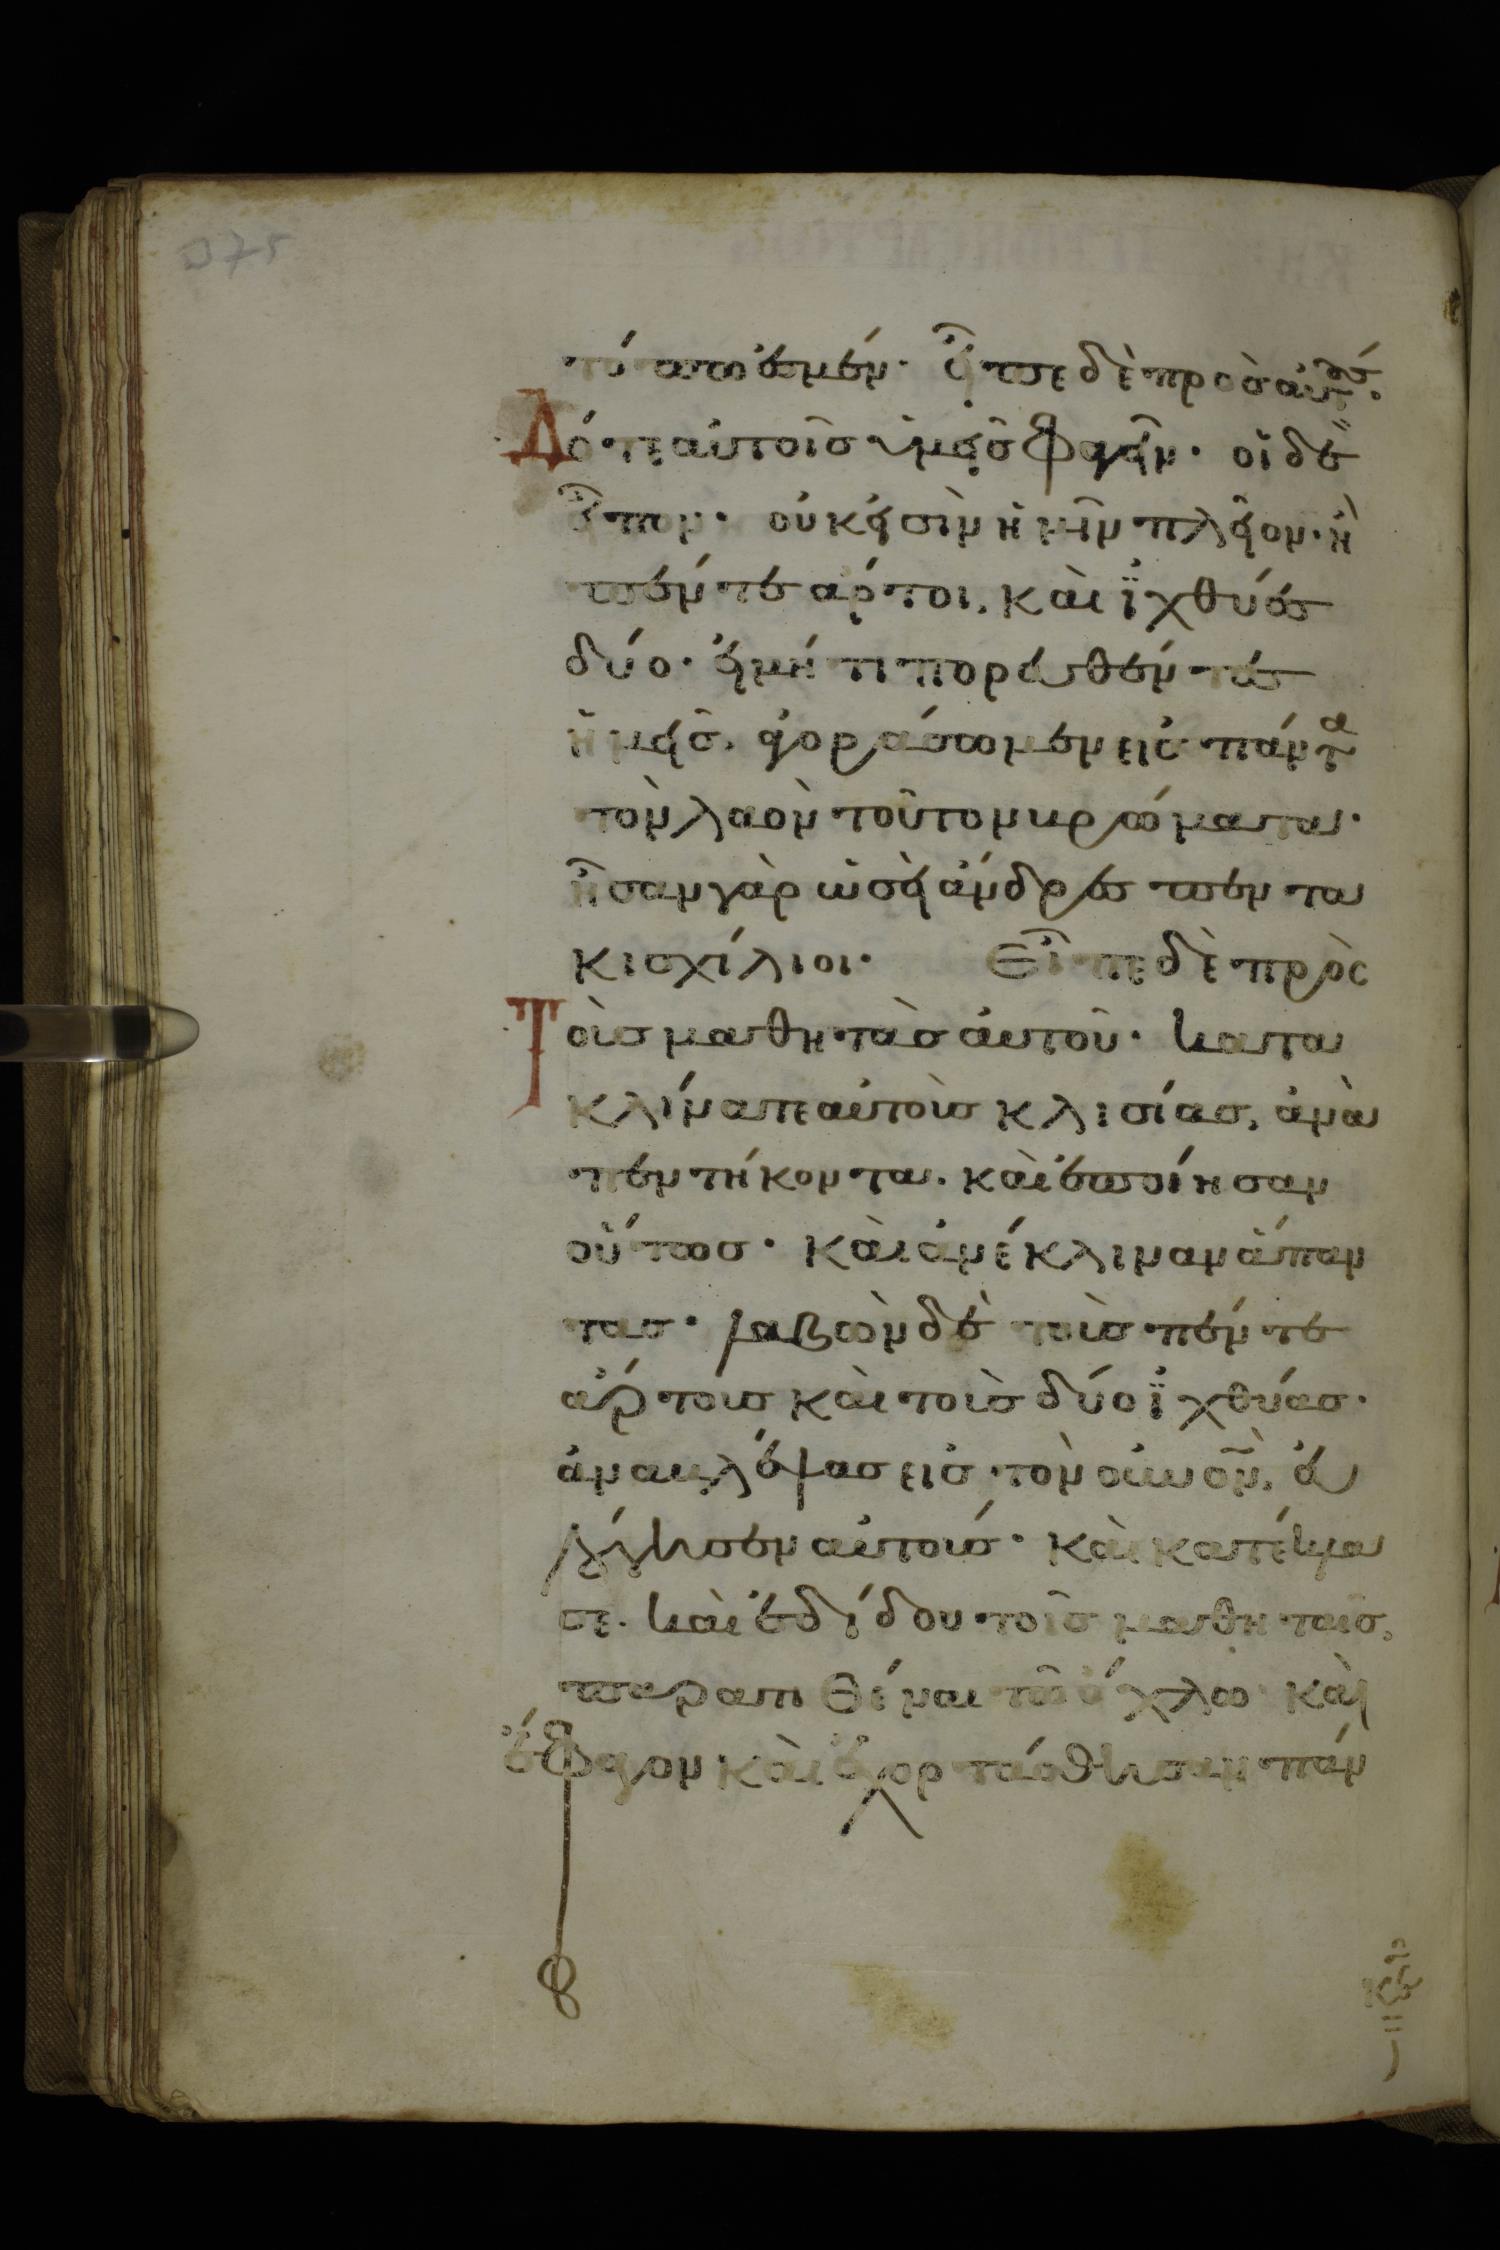 πω ἐσμέν· εἶπε δὲ πρὸς αὐτούς·
Δότε αὐτοῖς ὑμεῖς φαγεῖν· οἱ δὲ
εἶπον· οὐκ εἰσὶν ἡμῖν πλεῖον· ἢ
πέντε ἄρτοι, καὶ ἰχθύες
δύο· εἰ μή τι πορευθέντες
ἡμεῖς, ἀγοράσωμεν εἰς πάντα
τὸν λαὸν τοῦτον βρώματα·
ἦσαν γὰρ ὡσεὶ ἄνδρες πεντα
κισχίλιοι· Εἶπε δὲ πρὸς
Τοὺς μαθητὰς αὐτοῦ· κατα
κλίνατε αὐτοὺς κλισίας, ἀνὰ
πεντήκοντα. καὶ ἐποίησαν
οὕτως· καὶ ἀνέκλιναν ἅπαν
τας· λαβὼν δὲ τοὺς πέντε
ἄρτους καὶ τοὺς δύο ἰχθύας·
ἀναβλέψας εἰς τὸν οὐνον, εὐ
λόγησεν αὐτούς· καὶ κατέκλα
σε. καὶ ἐδίδου τοῖς μαθηταῖς,
παρατιθέναι τῶ ὄχλω καὶ
ἔφαγον καὶ ἐχορτάσθησαν πάν